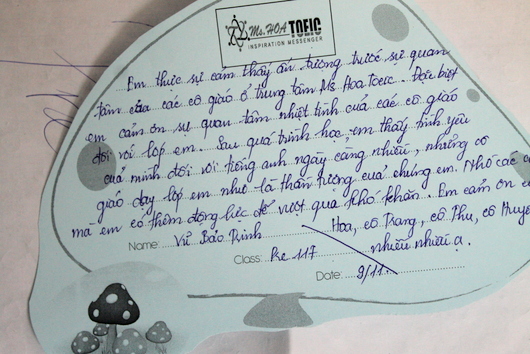 Ms.HOA TOEIC
INSPIRATION MESSENGER
Em thực sự cảm thấy ấn tượng trước sự quan
tâm của các cô giáo ở trung tâm Ms Hoa toeic. Đặc biệt
em cảm ơn sự quan tâm nhiệt tình của các cô giáo
đối với lớp em. Sau quá trình học, em thấy tình yêu
của mình đối với tiếng anh ngày càng nhiều, những cô
giáo dạy lớp em như là thần tượng của chúng em. Nhờ các
mà em có thêm động lực để vượt qua khó khăn. Em cảm ơn
Hoa, cô Trang, cô Thu, cô Huyền
nhiều nhiều ạ.
Name: Vũ Bảo Trinh
Class: Pre 117
Date: 9/11.